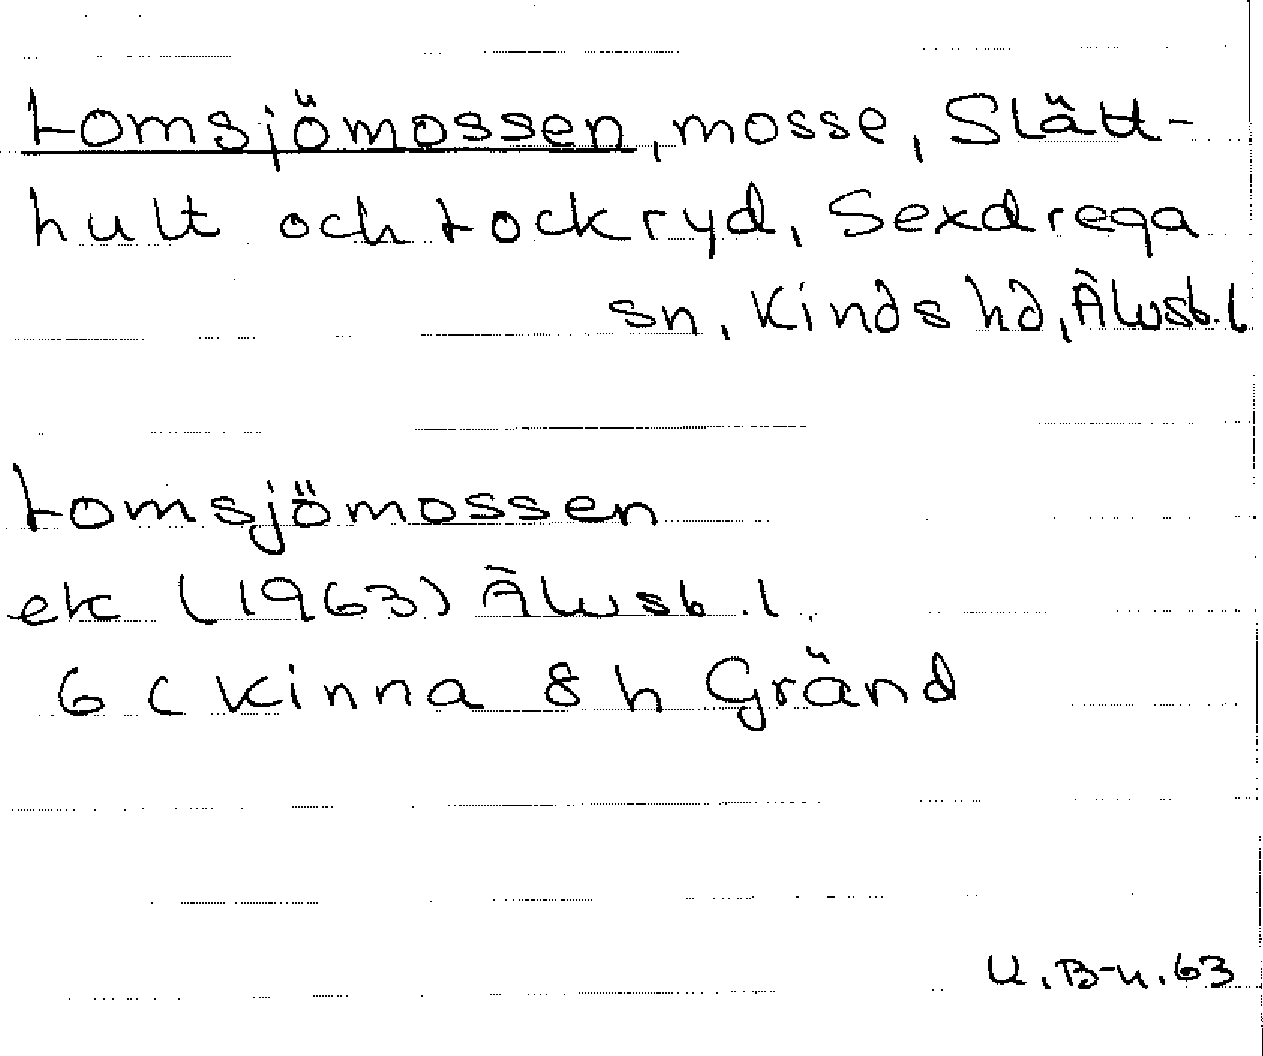 Lomsjömossen, mosse, Slätt-
hult och Lockryd, Sexdrega
sn, Kinds hd, Älvsb.l
Lomsjömossen
ek (1963) Älvsb.l.
6 C Kinna 8 h Gränd
U.B-n.63